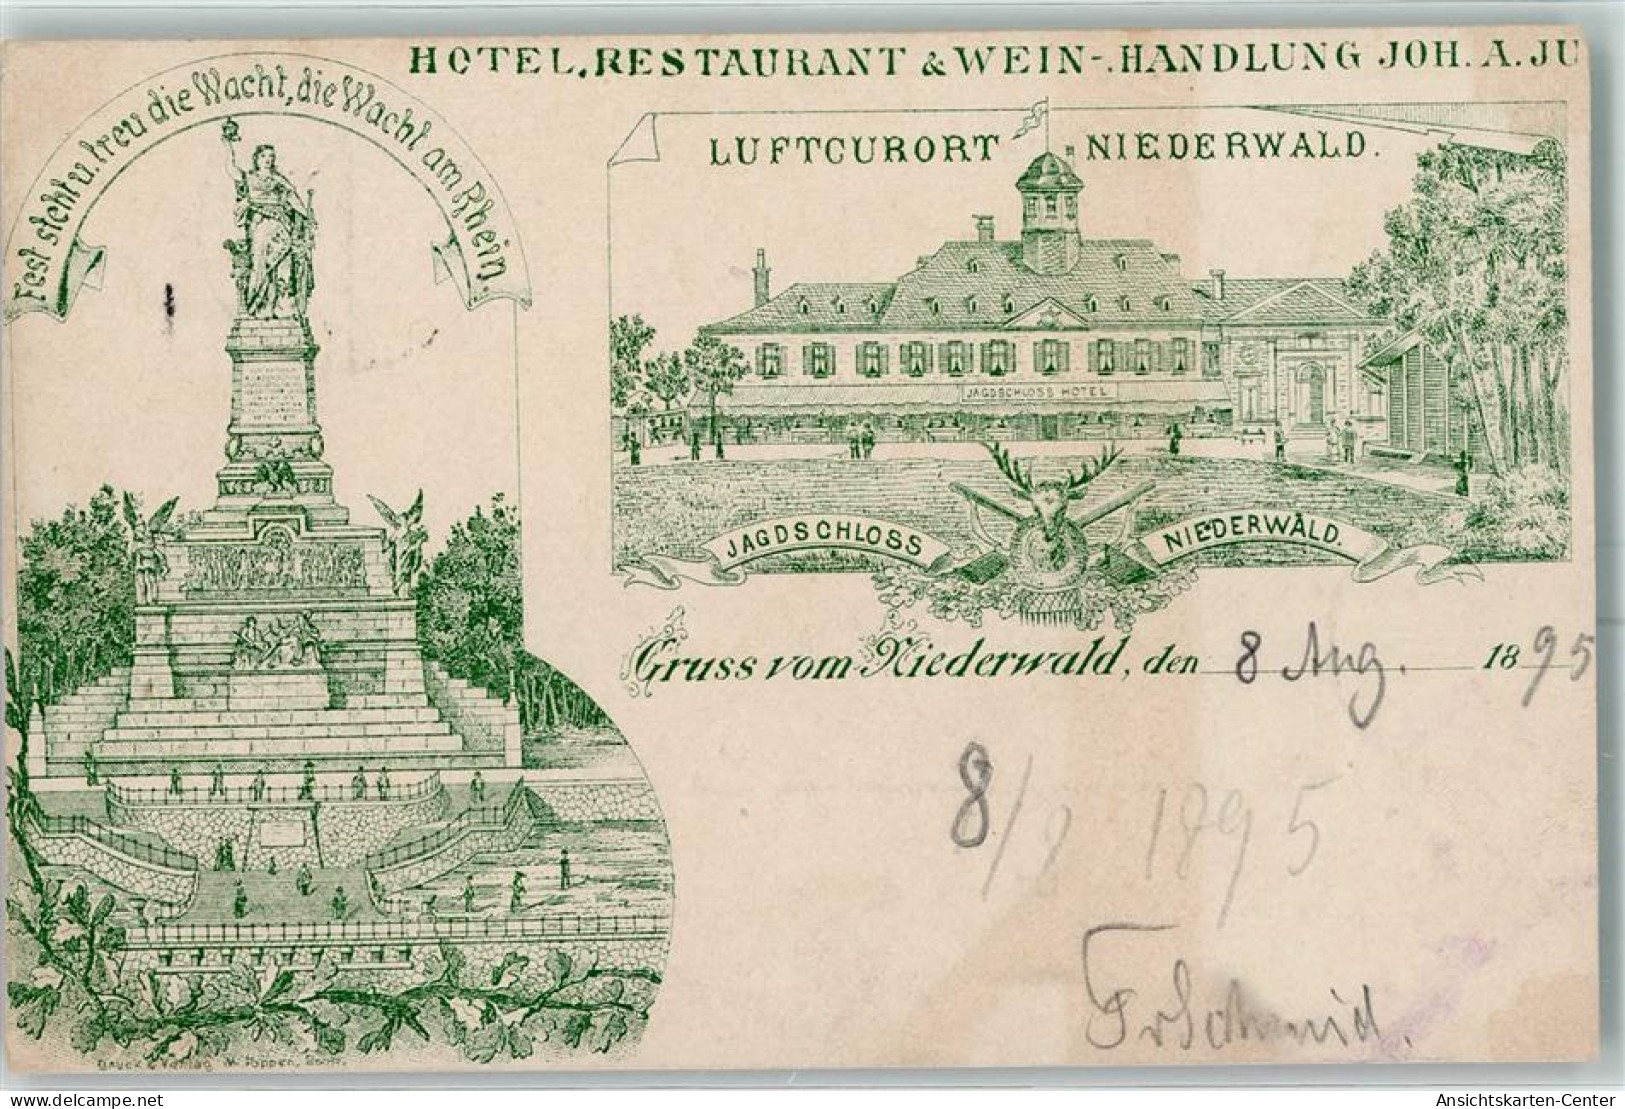 HOTEL, RESTAURANT & WEIN-HANDLUNG JOH. A. JU
Fest steht u. treu die Wacht, die Wacht am Rhein.
LUFTCURORT NIEDERWALD.
JAGDSCHLOSS HOTEL
JAGDSCHLOSS NIEDERWALD.
Gruss vom Niederwald, den 8 Aug. 1895
8/8 1895
Fr Schmid.
Druck & Verlag
delcampe.net
Ansichtskarten-Center